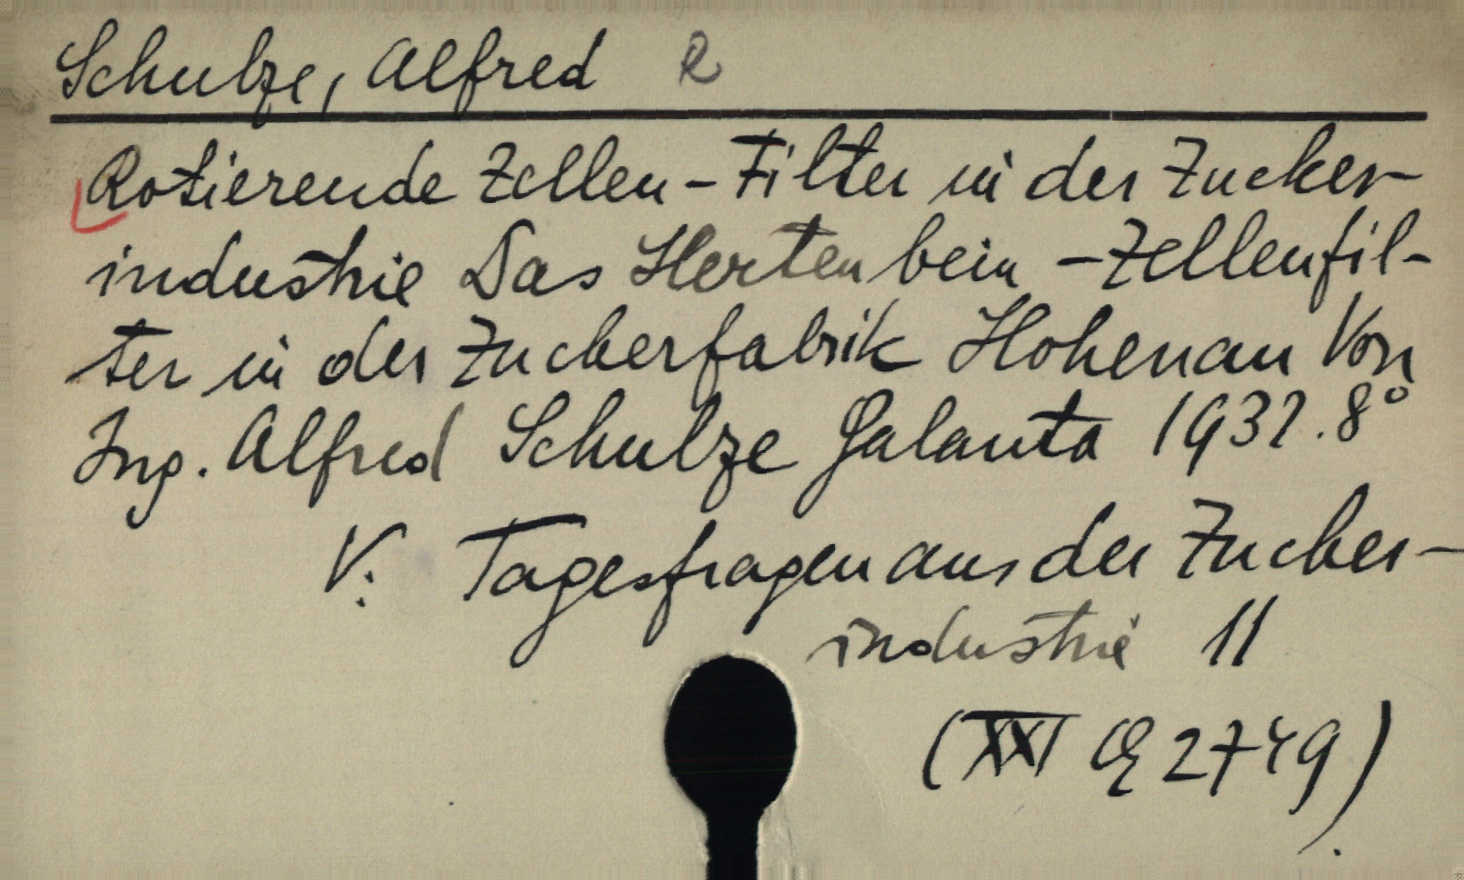 Schulze, Alfred R
Rotierende Zellen-Filter in der Zucker-
industrie Das Herten bein -Zellenfil-
ter in der Zuckerfabrik Hohenau Von
Ing. Alfred Schulze Galanta 1932.8°
V. Tagesfragen aus der Zucker-
industrie 11
(XXI Q 2749)